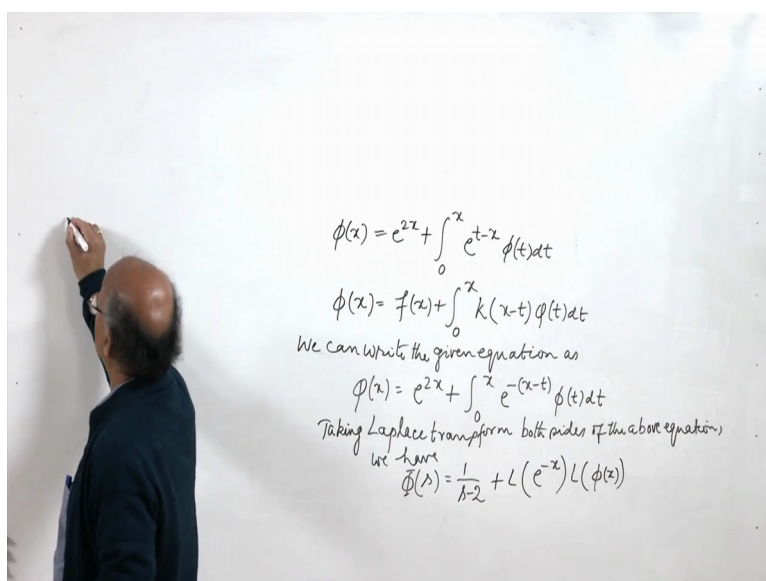 ϕ(x) = e^{2x} + ∫_0^x e^{t-x} ϕ(t)dt
ϕ(x) = f(x) + ∫_0^x k(x-t) φ(t)dt
We can write the given equation as
φ(x) = e^{2x} + ∫_0^x e^{-(x-t)} ϕ(t)dt
Taking Laplace transform both sides of the above equation,
we have
Φ̄(s) = 1/(s-2) + L(e^{-x}) L(ϕ(x))